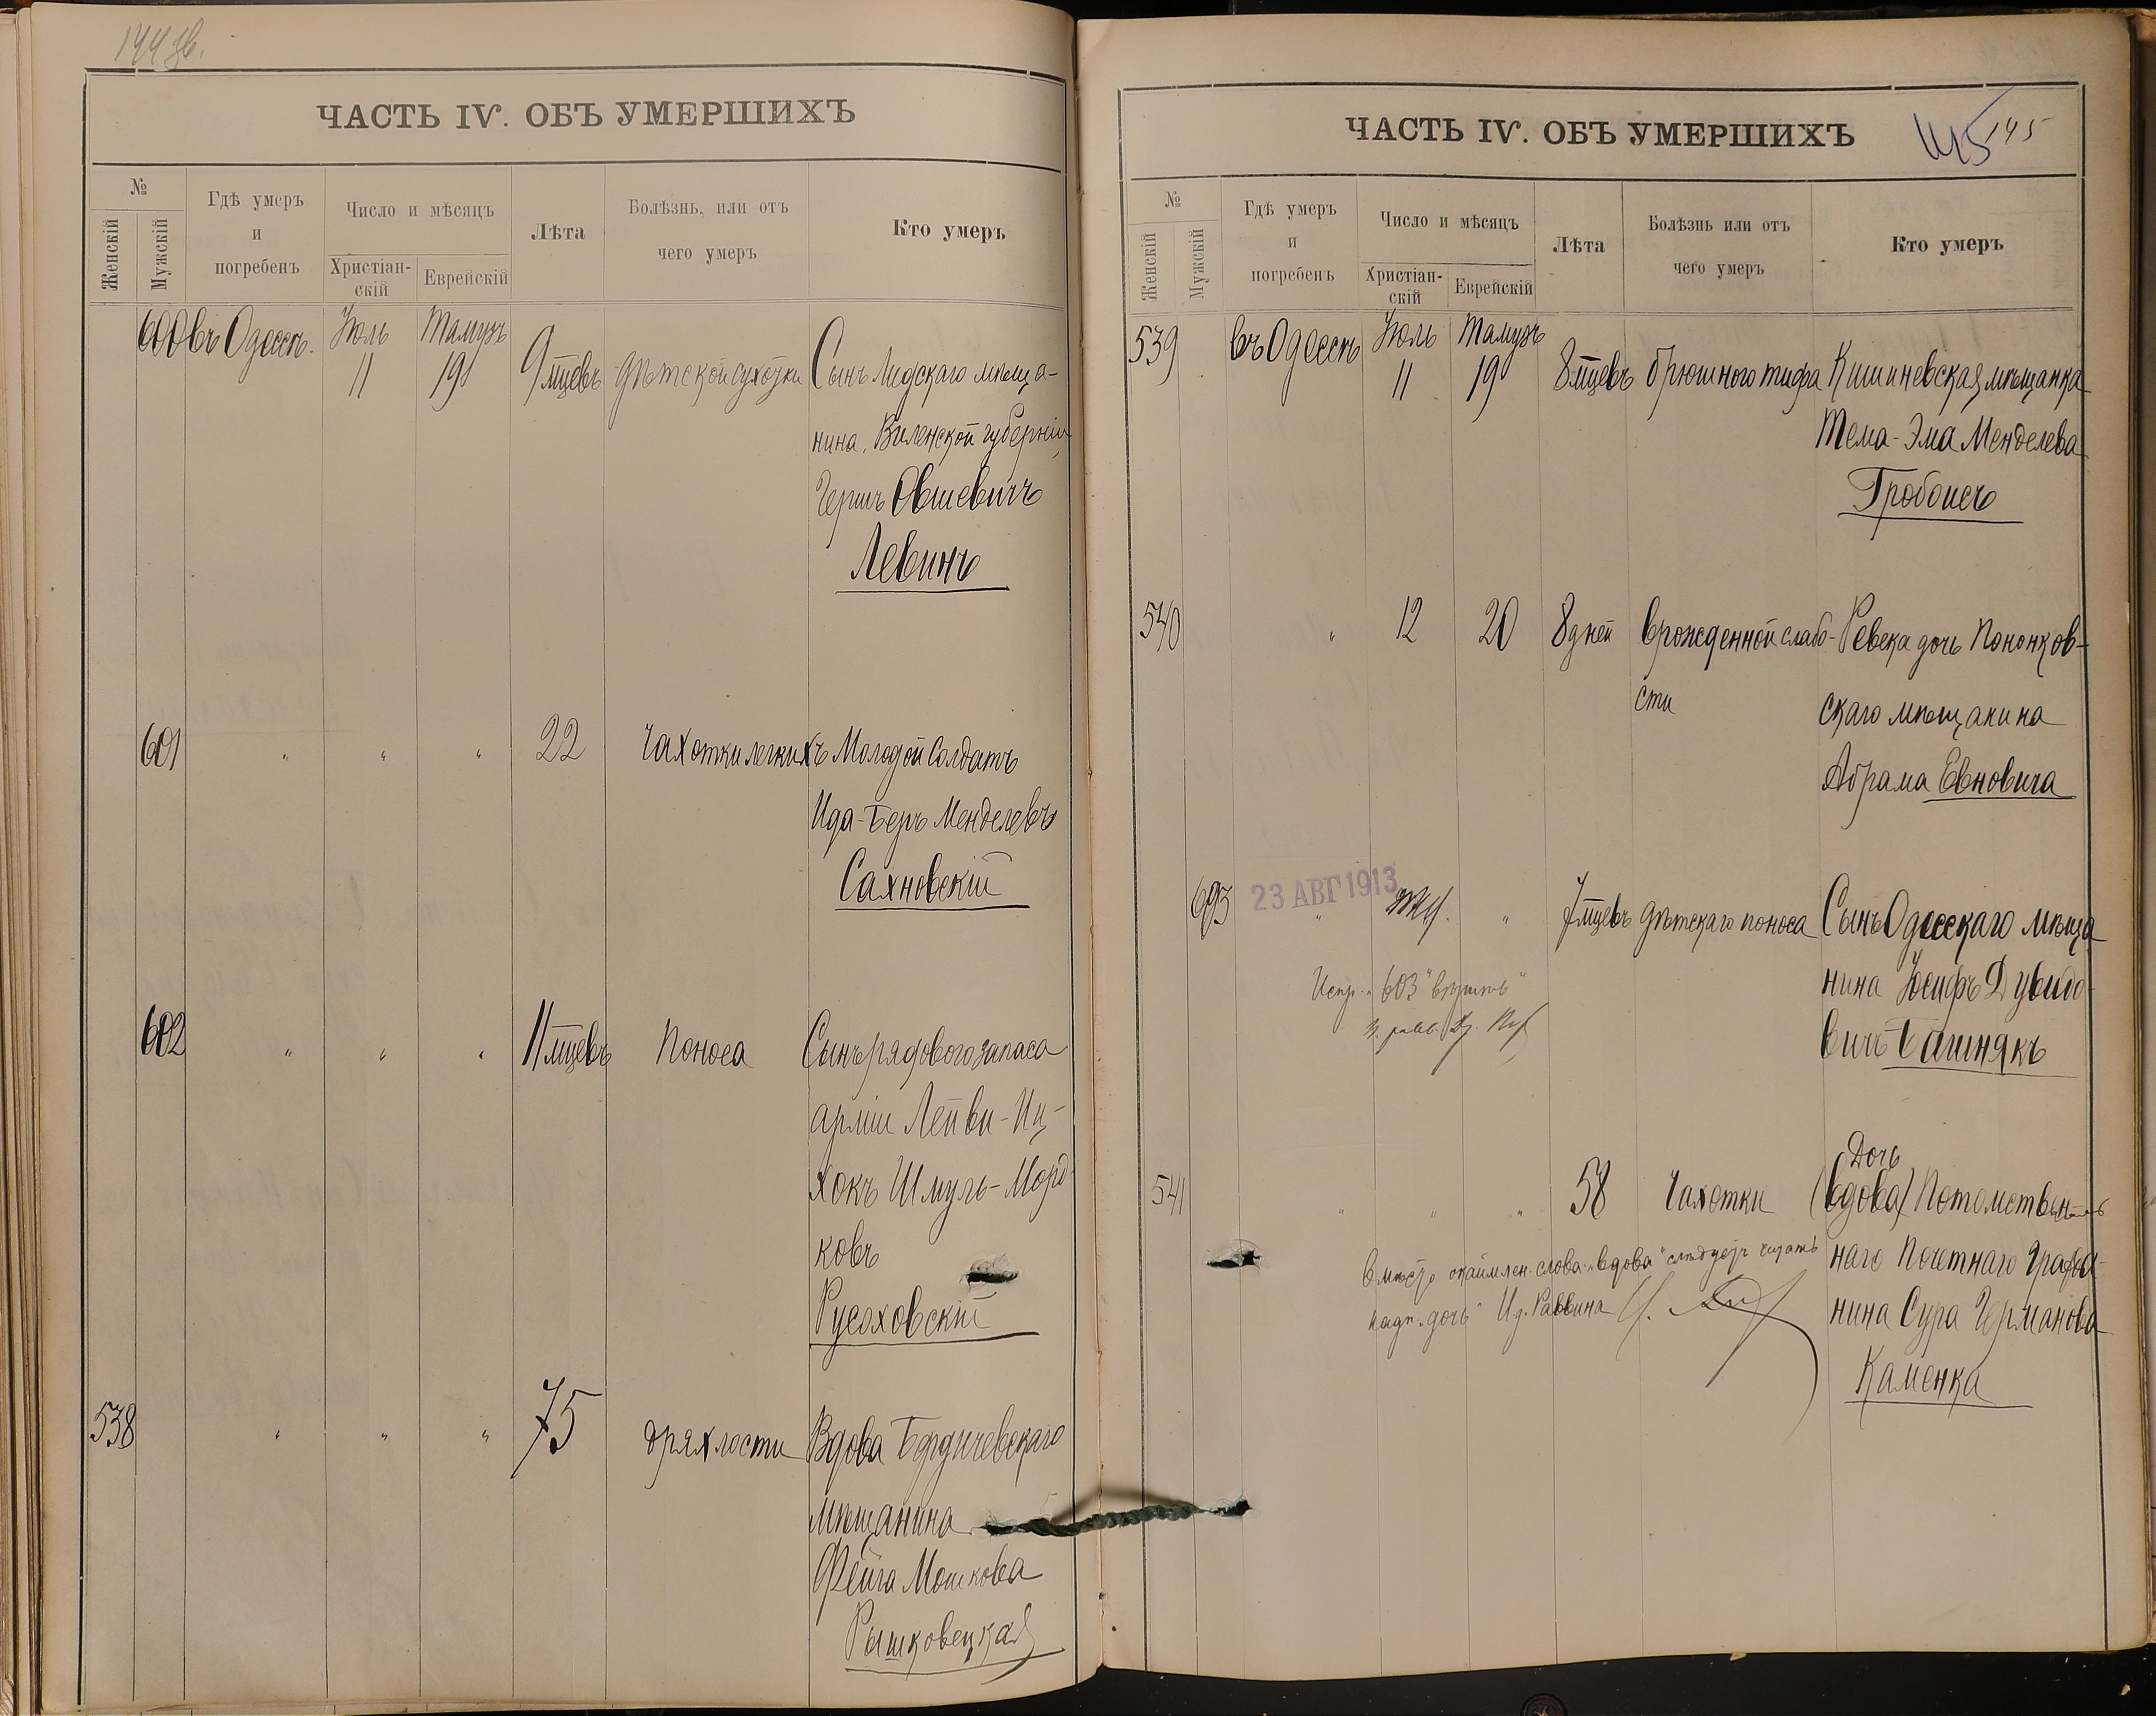 144 об.
ЧАСТЬ IV. ОБЪ УМЕРШИХЪ
№
Женскій
Мужскій
Гдѣ умеръ
и
погребенъ
Число и мѣсяцъ
Христіан-
скій
Еврейскій
Лѣта
Болѣзнь, или отъ
чего умеръ
Кто умеръ
600 въ Одессѣ. Іюль Тамузъ
11 19 9 мцевъ дѣтской сухотки Сынъ Лидскаго мѣща-
нина, Виленской губерніи,
Гершъ Овшевичъ
Левинъ
601 " " " 22 Чахотки легкихъ Молодой солдатъ
Ида-Беръ Менделевъ
Сахновскій
602 " " " 11 мцевъ Поноса Сынъ рядового запаса
арміи Лейви-Иц-
хокъ Шмуль-Морд-
ковъ
Русаховскій
538 " " " 75 дряхлости Вдова Бердичевскаго
мѣщанина
Фейга Мошкова
Рышковецкая
ЧАСТЬ IV. ОБЪ УМЕРШИХЪ
145 145
№
Женскій
Мужскій
Гдѣ умеръ
и
погребенъ
Число и мѣсяцъ
Христіан-
скій
Еврейскій
Лѣта
Болѣзнь или отъ
чего умеръ
Кто умеръ
539 въ Одессѣ Іюль Тамузъ
11 19 8 мцевъ брюшного тифа Кишиневская мѣщанка
Тема-Эма Менделева
Гробоисъ
540 " 12 20 8 дней врожденной слабо-
сти
Ревека дочь Пононков-
скаго мѣщанина
Абрама Евновича
23 АВГ 1913
603 " " 7 мцевъ дѣтскаго поноса Сынъ Одесскаго мѣща
нина Іосифъ Дувидо-
вичъ Башнякъ
Испр. "603" вѣрить"
541 " " " 58 Чахотки Дочь
(вдова) Потомствен-
наго Почетнаго Гражда-
нина Сура Германова
Каменка
вмѣсто окаймлен. слова "вдова" слѣдуетъ читать
надп. "дочь" И. д. Раввина